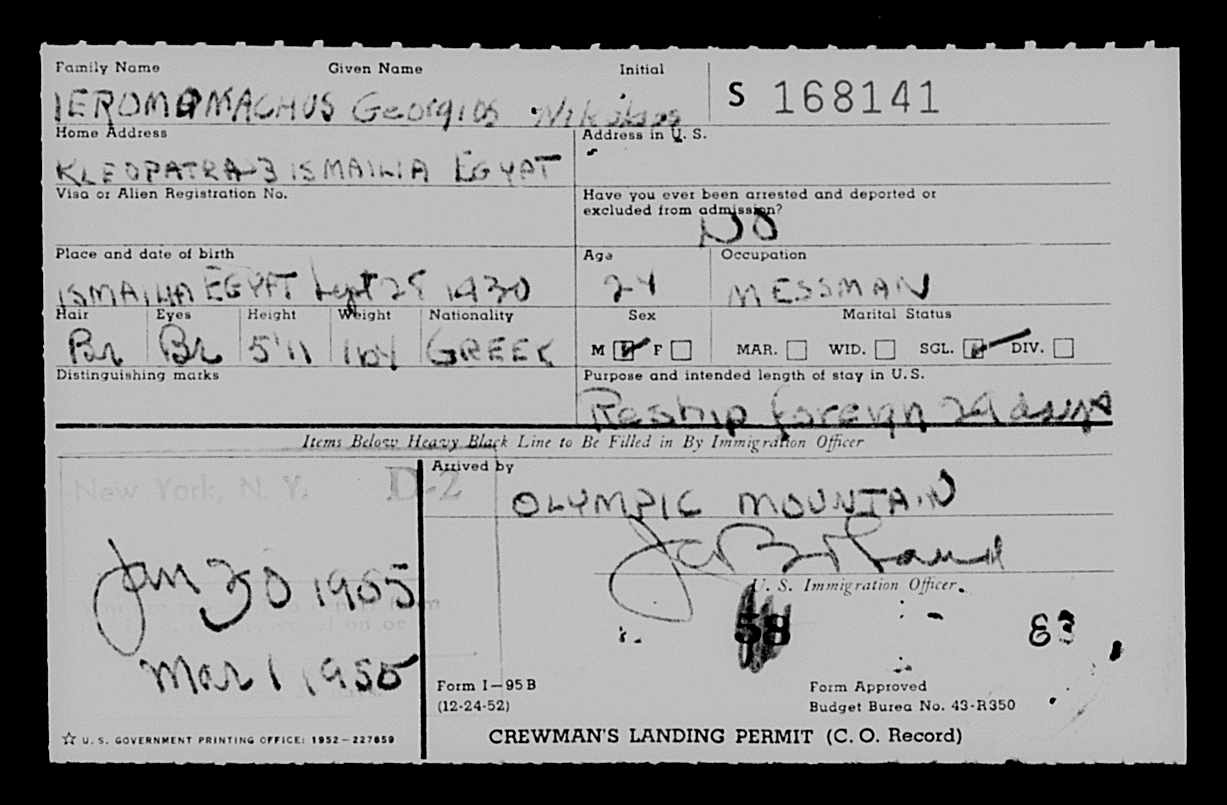 Family Name Given Name Initial
IEROMOMACHUS Georgios Nikolaos
S 168141
Home Address
KLEOPATRA-3 ISMAILIA EGYPT
Address in U. S.
Visa or Alien Registration No.
Have you ever been arrested and deported or
excluded from admission?
NO
Place and date of birth
ISMAILIA EGYPT Sept 28 1930
Age
24
Occupation
MESSMAN
Hair Eyes Height Weight Nationality
Br Br 5'11 164 GREEK
Sex Marital Status
M F MAR. WID. SGL. DIV.
Distinguishing marks
Purpose and intended length of stay in U.S.
Reship foreign 29 days
Items Below Heavy Black Line to Be Filled in By Immigration Officer
New York, N. Y. D-2
Jan 30 1955
Mar 1 1955
Arrived by
OLYMPIC MOUNTAIN
U. S. Immigration Officer.
58
83
Form I-95B
(12-24-52)
Form Approved
Budget Burea No. 43-R350
☆ U. S. GOVERNMENT PRINTING OFFICE: 1952-227659
CREWMAN'S LANDING PERMIT (C. O. Record)